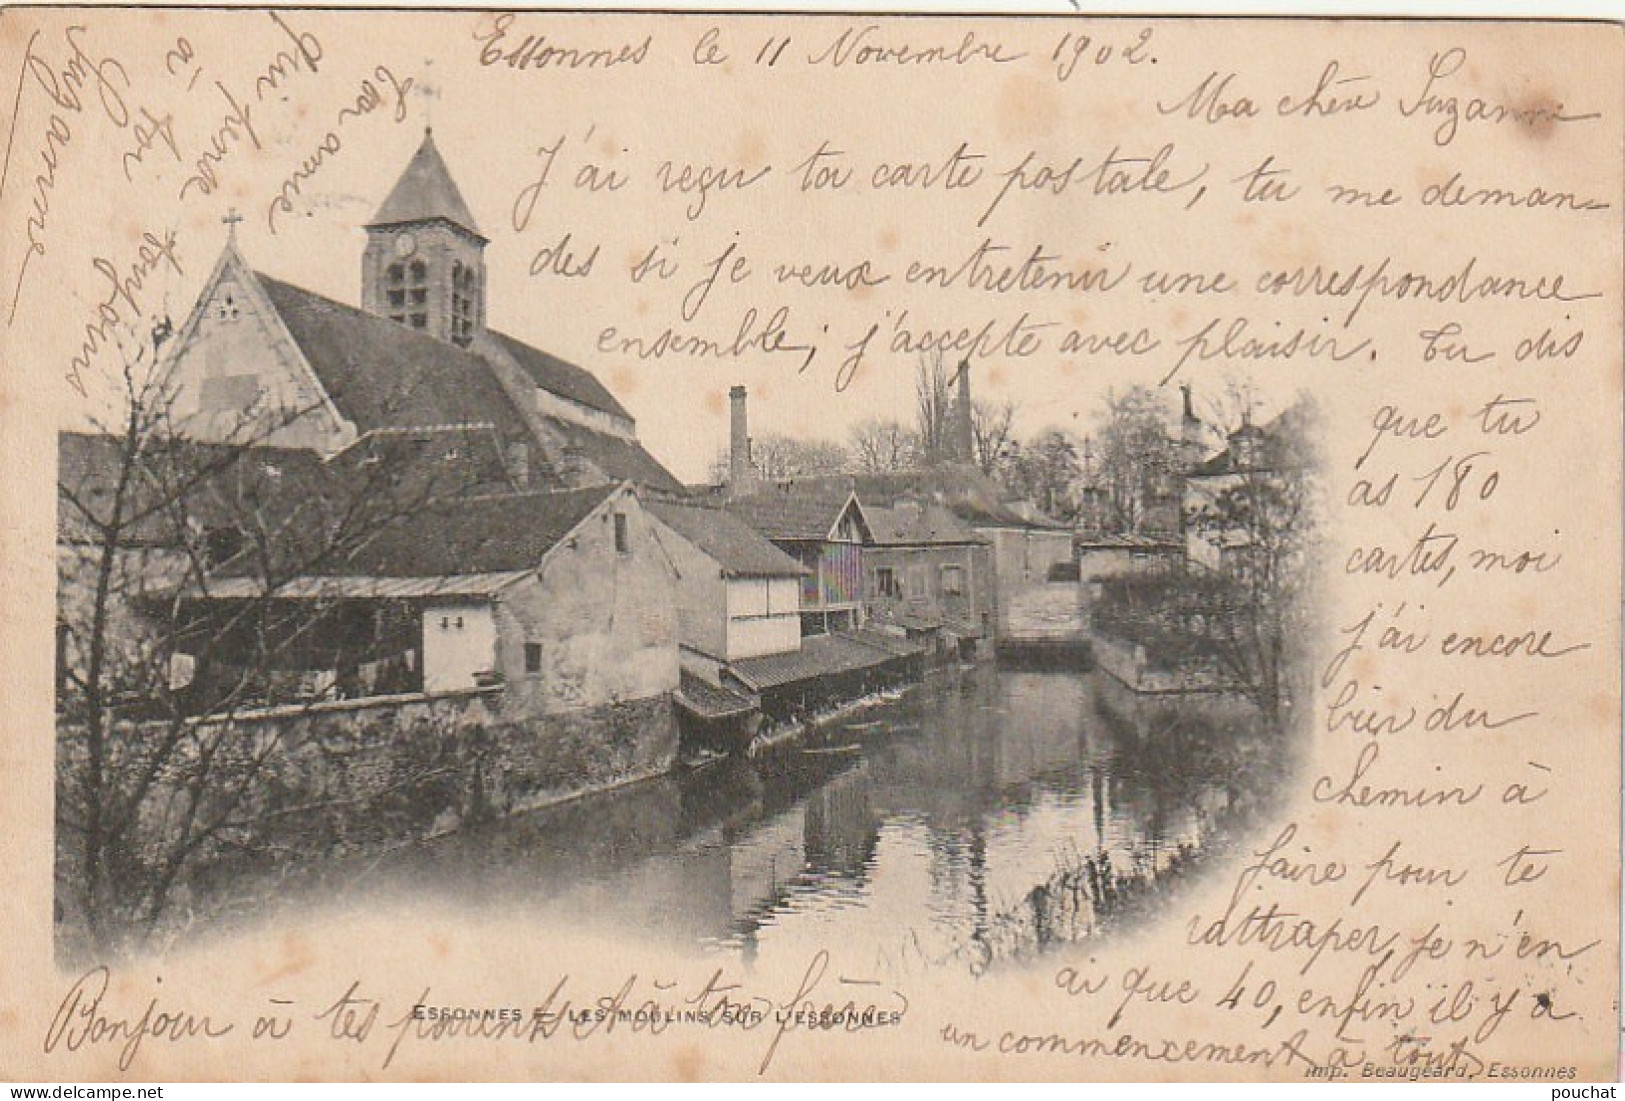 Essonnes le 11 Novembre 1902.
Ma chère Suzanne
J'ai reçu ta carte postale, tu me deman=
des si je veux entretenir une correspondance
ensemble, j'accepte avec plaisir. Tu dis
que tu
as 180
cartes, moi
j'ai encore
bien du
chemin à
faire pour te
rattraper, je n'en
ai que 40, enfin il y a
un commencement à tout
Bonjour à tes parents et à ton frère
Ton amie
qui pense
à toi toujours
Suzanne
ESSONNES — LES MOULINS SUR L'ESSONNES
Imp. Beaugeard, Essonnes
pouchat